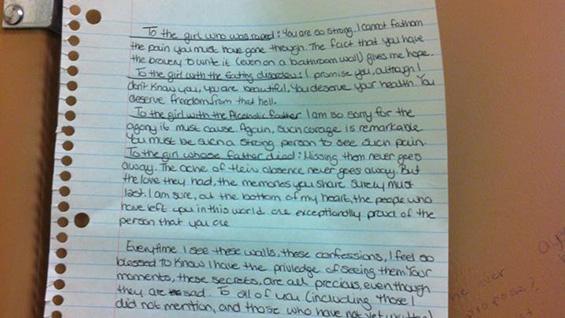 To the girl who was raped: You are so strong. I cannot fathom
the pain you must have gone through. The fact that you have
the bravery to write it (even on a bathroom wall) gives me hope.
To the girl with the Eating disorder: I promise you, although I
don't know you, you are beautiful. You deserve your health. You
deserve freedom from that hell.
To the girl with the Alcoholic Father I am so sorry for the
agony it must cause. Again, such courage is remarkable
You must be such a strong person to see such pain.
To the girl whose father died: Missing them never goes
away. The ache of their absence never goes away. But
the love they had, the memories you share surely must
last. I am sure, out the bottom of my heart, the people who
have left you in this world are exceptionally proud of the
person that you are
Everytime I see these walls, these confessions, I feel so
blessed to know I have the privledge of seeing them. Your
moments, these secrets, are all precious, even though
they are sad. To all of you (including those I
did not mention, and those who have not yet
over